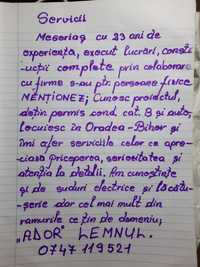 Servicii
Meseriaș cu 23 ani de
experiență, execut lucrări, const-
ucții complete prin colaborare
cu firme s-au ptr. persoane fizice
MENȚIONEZ; Cunosc proiectul,
dețin permis cond. cat. B și auto,
locuiesc în Oradea-Bihor și
îmi ofer serviciile celor ce apre-
ciază priceperea, seriozitatea și
atenția la detalii. Am cunoștințe
și de suduri electrice și lăcătu-
șerie dar cel mai mult din
ramurile ce țin de domeniu,
"ADOR" LEMNUL.
0747 119521